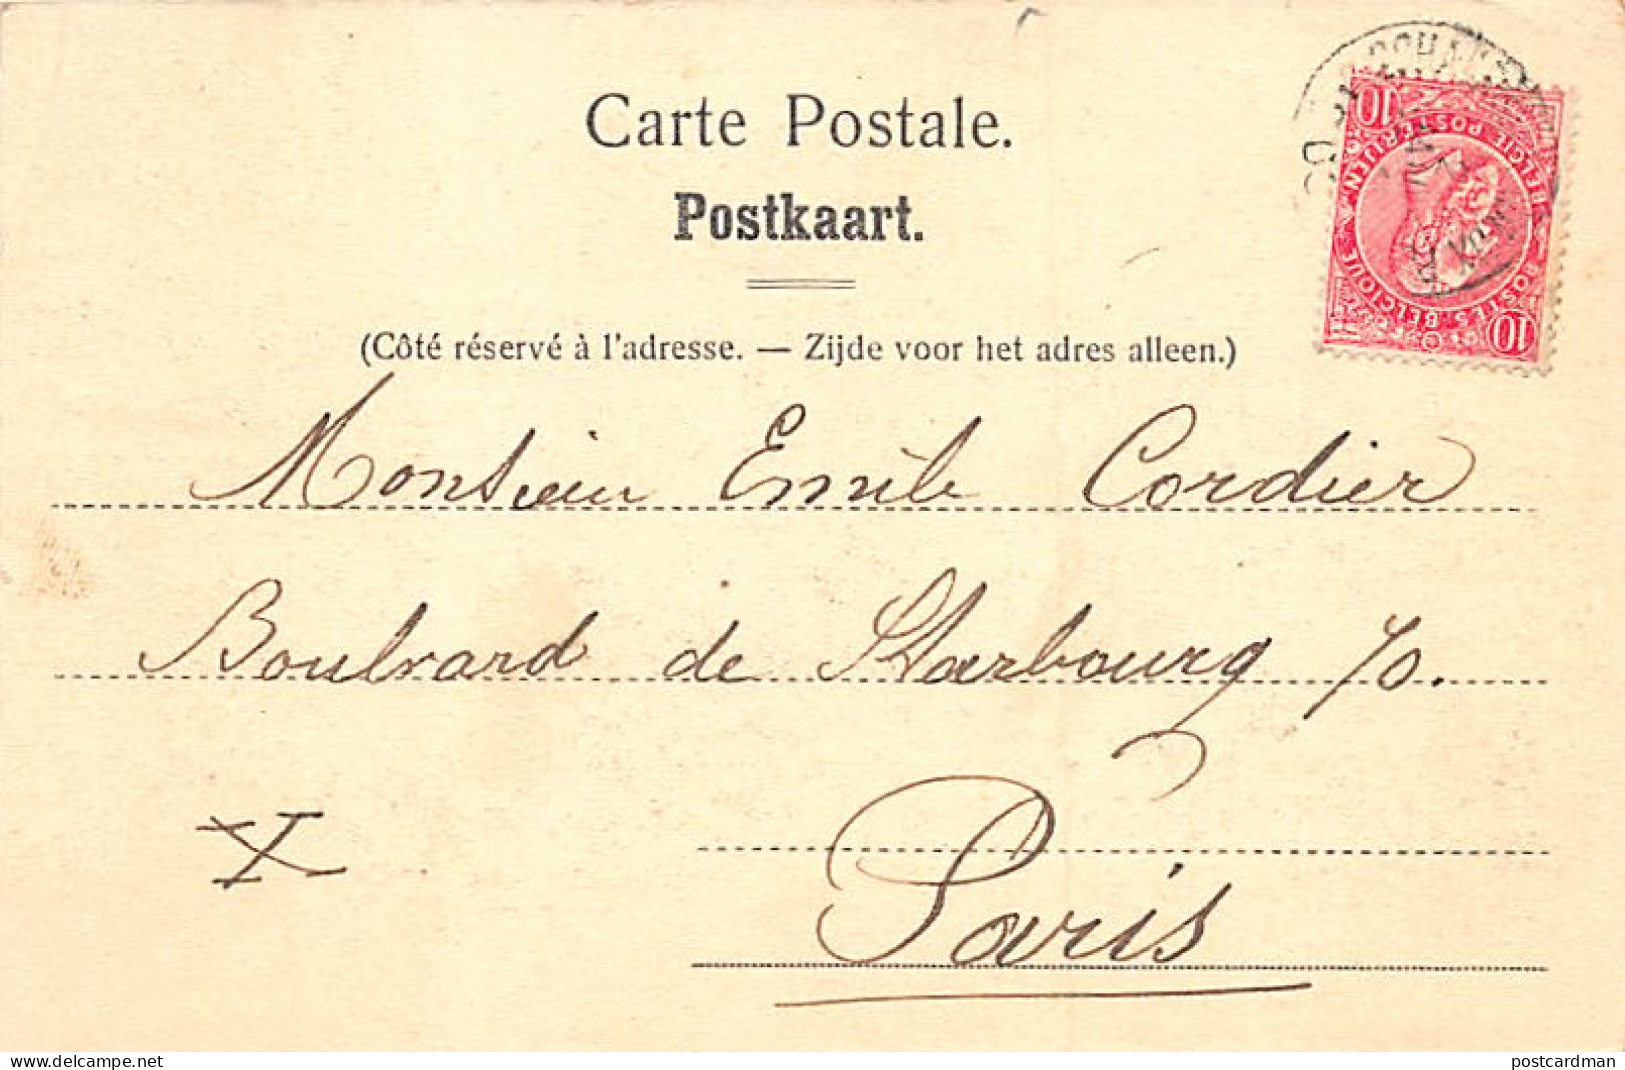 Carte Postale.
Postkaart.
(Côté réservé à l'adresse. — Zijde voor het adres alleen.)
10
BELGIË POSTERIJEN
POSTES BELGIQUE
10
Monsieur Emile Cordier
Boulvard de Starbourg 70.
X
Paris
delcampe.net
postcardman